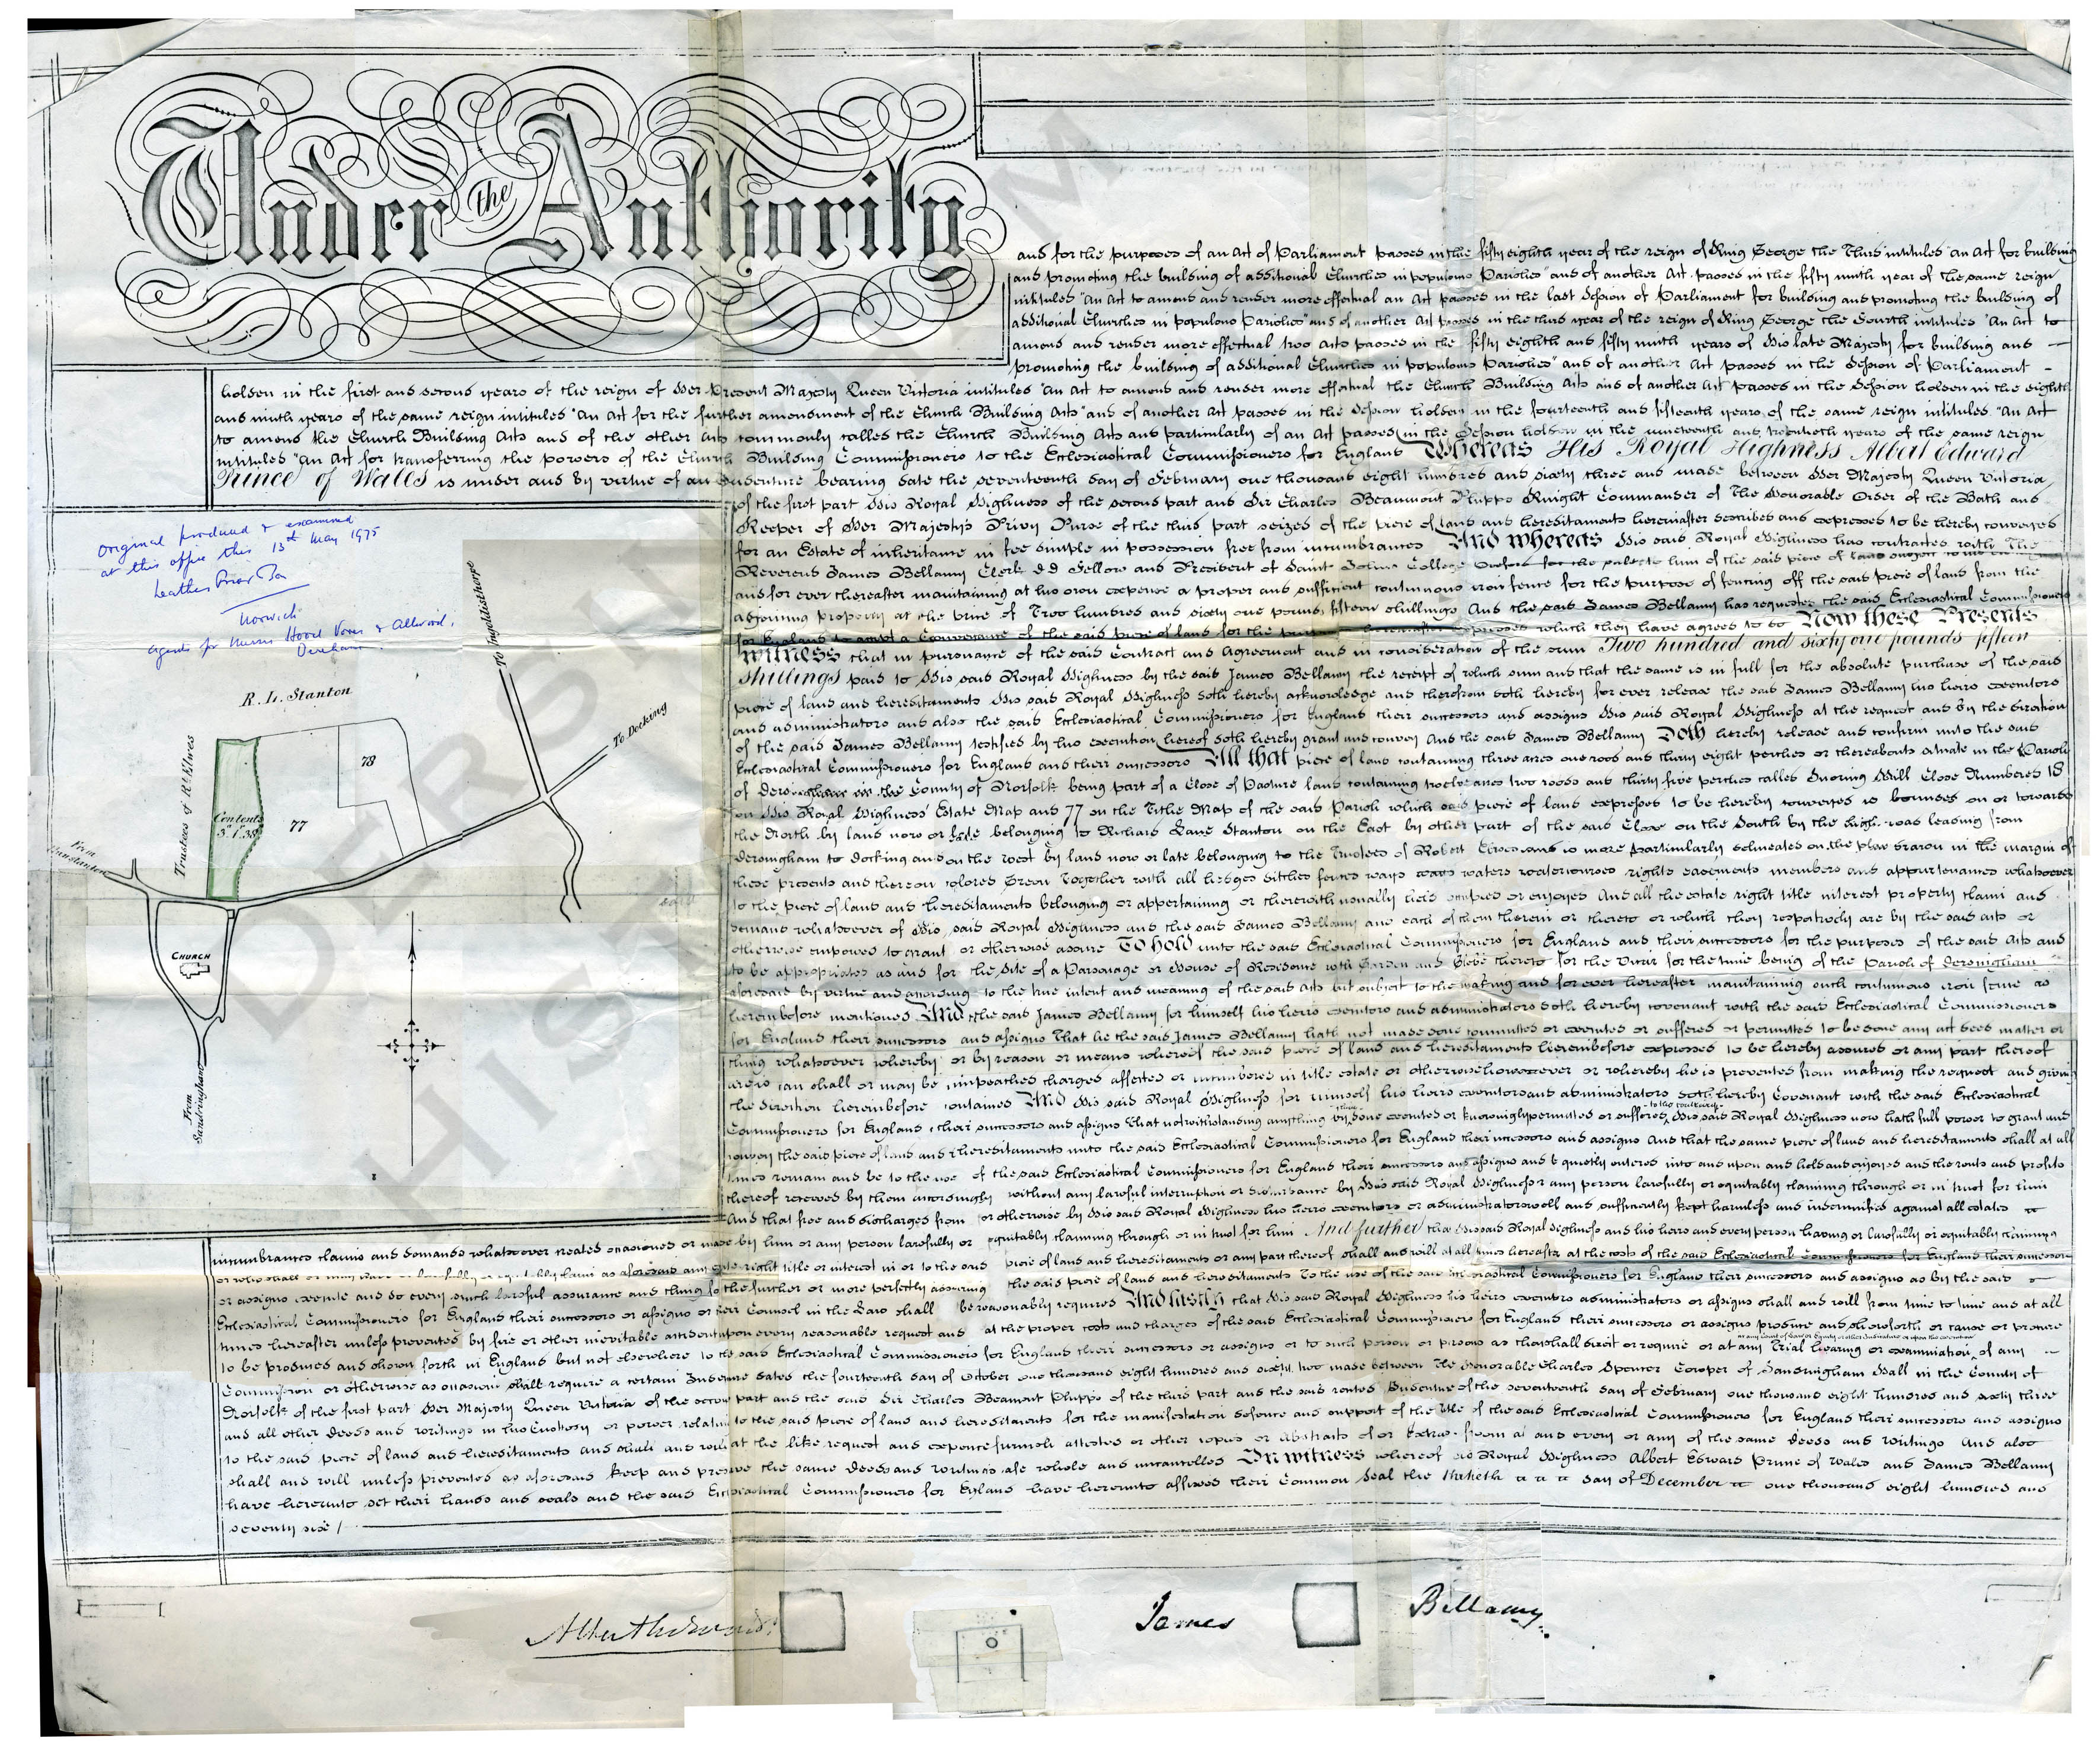 Under the Authority
and for the purposes of an Act of Parliament passed in the fifty eighth year of the reign of King George the Third intituled "An Act for building
and promoting the building of additional Churches in populous Parishes" and of another Act passed in the fifty ninth year of the same reign
intituled "An Act to amend and render more effectual an Act passed in the last Session of Parliament for building and promoting the building of
additional Churches in populous Parishes" and of another Act passed in the third year of the reign of King George the Fourth intituled "An Act to
amend and render more effectual two Acts passed in the fifty eighth and fifty ninth years of His late Majesty for building and
promoting the building of additional Churches in populous Parishes" and of another Act passed in the Session of Parliament
holden in the first and second years of the reign of Her Present Majesty Queen Victoria intituled "An Act to amend and render more effectual the Church Building Acts and of another Act passed in the Session holden in the eighth
and ninth years of the same reign intituled "An Act for the further amendment of the Church Building Acts" and of another Act passed in the Session holden in the fourteenth and fifteenth years of the same reign intituled "An Act
to amend the Church Building Acts and of the other Acts commonly called the Church Building Acts and particularly of an Act passed in the Session holden in the nineteenth and twentieth years of the same reign
intituled "An Act for transferring the powers of the Church Building Commissioners to the Ecclesiastical Commissioners for England Whereas His Royal Highness Albert Edward
Prince of Wales is under and by virtue of an Indenture bearing date the seventeenth day of February one thousand eight hundred and sixty three and made between Her Majesty Queen Victoria
of the first part His Royal Highness of the second part and Sir Charles Beaumont Phipps Knight Commander of The Honorable Order of the Bath and
Keeper of Her Majesty's Privy Purse of the third part seized of the piece of land and hereditaments hereinafter described and expressed to be hereby conveyed
for an Estate of inheritance in fee simple in possession free from incumbrances And whereas His said Royal Highness has contracted with The
Reverend James Bellamy Clerk DD Fellow and President of Saint John's College Oxford for the sale to him of the said piece of land
and for ever thereafter maintaining at his own expense a proper and sufficient continuous iron fence for the purpose of fencing off the said piece of land from the
adjoining property at the price of Two hundred and sixty one pounds fifteen shillings And the said James Bellamy has requested the said Ecclesiastical Commissioners
for England to accept a Conveyance of the said piece of land for the hereinafter expressed which they have agreed to do Now these Presents
Witness that in pursuance of the said Contract and Agreement and in consideration of the sum Two hundred and sixty one pounds fifteen
shillings paid to His said Royal Highness by the said James Bellamy the receipt of which sum and that the same is in full for the absolute purchase of the said
piece of land and hereditaments His said Royal Highness doth hereby acknowledge and therefrom doth hereby for ever release the said James Bellamy his heirs executors
and administrators and also the said Ecclesiastical Commissioners for England their successors and assigns His said Royal Highness at the request and by the direction
of the said James Bellamy testified by his execution hereof doth hereby grant and convey And the said James Bellamy Doth hereby release and confirm unto the said
Ecclesiastical Commissioners for England and their successors All that piece of land containing three acres one rood and thirty eight perches or thereabouts situate in the Parish
of Dersingham in the County of Norfolk being part of a Close of Pasture land containing twelve acres two roods and thirty five perches called Snoring Hill Close Numbered 18
on His Royal Highness' Estate Map and 77 on the Tithe Map of the said Parish which said piece of land expressed to be hereby conveyed is bounded on or towards
the North by land now or late belonging to Richard Lane Stanton on the East by other part of the said Close on the South by the high road leading from
Dersingham to Docking and on the West by land now or late belonging to the Trustees of Robert Elwes and is more particularly delineated on the plan drawn in the margin of
these presents and thereon colored Green Together with all hedges ditches fences ways waters watercourses rights easements members and appurtenances whatsoever
to the piece of land and hereditaments belonging or appertaining or therewith usually held occupied or enjoyed And all the estate right title interest property claim and
demand whatsoever of His said Royal Highness and the said James Bellamy and each of them therein or thereto or which they respectively are by the said acts or
otherwise empowered to grant or otherwise assure To hold unto the said Ecclesiastical Commissioners for England and their successors for the purposes of the said Acts and
to be appropriated as and for the site of a Parsonage or House of Residence with Garden and Glebe thereto for the Vicar for the time being of the Parish of Dersingham
aforesaid by virtue and according to the true intent and meaning of the said Acts but subject to the making and for ever hereafter maintaining such continuous iron fence as
hereinbefore mentioned And the said James Bellamy for himself his heirs executors and administrators doth hereby covenant with the said Ecclesiastical Commissioners
for England their successors and assigns That he the said James Bellamy hath not made done committed or executed or suffered or permitted to be done any act deed matter or
thing whatsoever whereby or by reason or means whereof the said piece of land and hereditaments hereinbefore expressed to be hereby assured or any part thereof
are is can shall or may be impeached charged affected or incumbered in title estate or otherwise howsoever or whereby he is prevented from making the request and giving
the direction hereinbefore contained And His said Royal Highness for himself his heirs executors and administrators doth hereby Covenant with the said Ecclesiastical
Commissioners for England their successors and assigns That notwithstanding anything by him done executed or knowingly permitted or suffered to the contrary His said Royal Highness now hath full power to grant and
convey the said piece of land and hereditaments unto the said Ecclesiastical Commissioners for England their successors and assigns And that the same piece of land and hereditaments shall at all
times remain and be to the use of the said Ecclesiastical Commissioners for England their successors and assigns and be quietly entered into and upon and held and enjoyed and the rents and profits
thereof received by them accordingly without any lawful interruption or disturbance by His said Royal Highness or any person lawfully or equitably claiming through or in trust for him
And that free and discharged from or otherwise by His said Royal Highness his heirs executors or administrators well and sufficiently kept harmless and indemnified against all estates
incumbrances claims and demands whatsoever created occasioned or made by him or any person lawfully or equitably claiming through or in trust for him And further that His said Royal Highness and his heirs and every person having or lawfully or equitably claiming
or who shall or may have or lawfully or equitably claim as aforesaid any estate right title or interest in or to the said piece of land and hereditaments or any part thereof shall and will at all times hereafter at the costs of the said Ecclesiastical Commissioners for England their successors
or assigns execute and do every such lawful assurance and thing for the further or more perfectly assuring the said piece of land and hereditaments To the use of the said Ecclesiastical Commissioners for England their successors and assigns as by the said
Ecclesiastical Commissioners for England their successors or assigns or their Counsel in the Law shall be reasonably required And lastly that His said Royal Highness his heirs executors administrators or assigns shall and will from time to time and at all
times hereafter unless prevented by fire or other inevitable accident upon every reasonable request and at the proper costs and charges of the said Ecclesiastical Commissioners for England their successors or assigns produce and shew forth or cause or procure
to be produced and shewn forth in England but not elsewhere to the said Ecclesiastical Commissioners for England their successors or assigns or to such person or persons as they shall direct or require or at any Trial hearing or examination of any
Commission or otherwise as occasion shall require a certain Indenture dated the fourteenth day of October one thousand eight hundred and sixty two made between The Honorable Charles Spencer Cowper of Sandringham Hall in the County of
Norfolk of the first part Her Majesty Queen Victoria of the second part and the said Sir Charles Beaumont Phipps of the third part and the said recited Indenture of the seventeenth day of February one thousand eight hundred and sixty three
and all other deeds and writings in his Custody or power relating to the said piece of land and hereditaments for the manifestation defence and support of the title of the said Ecclesiastical Commissioners for England their successors and assigns
to the said piece of land and hereditaments and shall and will at the like request and expence furnish attested or other copies or abstracts of or extracts from all and every or any of the same deeds and writings And also
shall and will unless prevented as aforesaid keep and preserve the same deeds and writings safe whole and uncancelled In witness whereof His Royal Highness Albert Edward Prince of Wales and James Bellamy
have hereunto set their hands and seals and the said Ecclesiastical Commissioners for England have hereunto affixed their Common Seal the thirtieth day of December one thousand eight hundred and
seventy six /
Original produced & examined
at this office this 13th May 1975
Norwich
Dereham.
R. L. Stanton
Trustees of Rt. Elwes
Contents
3a 1r 38p
77
78
To Ingoldisthorpe
To Docking
From
Hunstanton
CHURCH
From
Sandringham
Albert Edward
James
Bellamy.